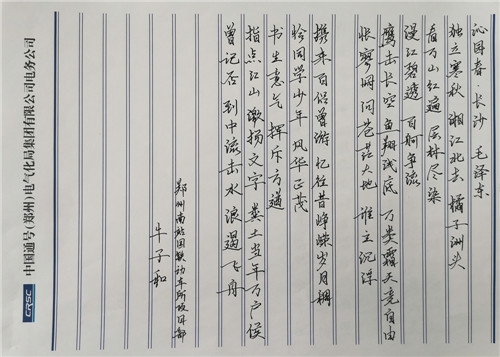 沁园春·长沙 毛泽东
独立寒秋 湘江北去 橘子洲头
看万山红遍 层林尽染
漫江碧透 百舸争流
鹰击长空 鱼翔浅底 万类霜天竞自由
怅寥廓 问苍茫大地 谁主沉浮
携来百侣曾游 忆往昔峥嵘岁月稠
恰同学少年 风华正茂
书生意气 挥斥方遒
指点江山 激扬文字 粪土当年万户侯
曾记否 到中流击水 浪遏飞舟
郑州南站国铁动车所项目部
牛子和
CRSC 中国通号(郑州)电气化局集团有限公司电务公司